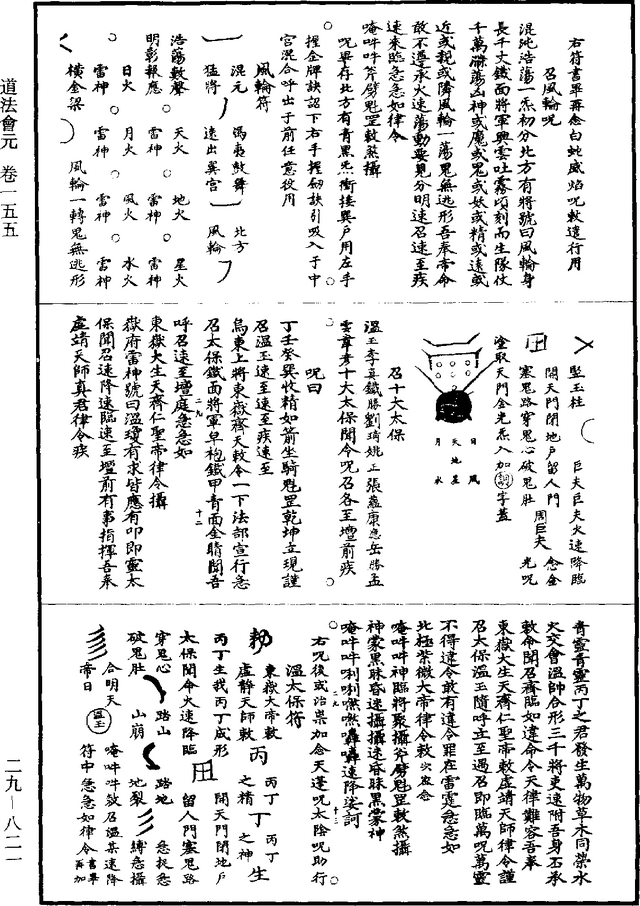 道法會元 卷一五五
二九-八二一
右符書畢再念白蛇威焰呪敕遣行用
召風輪呪
混沌浩蕩一炁初分北方有將號曰風輪身
長千丈鐵面將軍興雲吐霧頃刻而生隊仗
千萬滌蕩山神或魔或鬼或妖或精或遠或
近或親或降風輪一蕩鬼無逃形吾奉帝命
敢不遵承火速蕩動要見分明速召速至疾
速來臨急急如律令
唵吽吽斧劈魁罡敕煞攝
呪畢存北方有青黑炁衝接巽戶用左手
捏金牌訣詔下右手捏劒訣引吸入于中
宮混合呼出于前任意役用
風輪符
混元 馮夷鼓舞 北方
猛將 速出巽宮 風輪
浩蕩數聲 天火 地火 星火
明彰報應 雷神 雷神 雷神
日火 月火 風火 水火
雷神 雷神 雷神 雷神
橫金梁 風輪一轉鬼無逃形
堅玉柱 巨夫巨夫火速降臨
開天門閉地戶留人門 周巨夫 念金
塞鬼路穿鬼心破鬼肚 光呪
塗取天門金光炁入加 字蓋
日 風
天地星
月 水
召十大太保
溫玉李真鐵勝劉琦姚正張蘊康應岳勝孟
雲韋彥十大太保聞令呪召各至壇前疾
呪曰
丁壬癸巽收精如箭坐騎魁罡乾坤立現謹
召溫玉速至速至疾速至
烏東上將東嶽齋天敕令一下法部宣行急
召太保鐵面將軍阜袍鐵甲青面金睛聞吾
呼召速至壇庭急急如
東嶽大生天齊仁聖帝律令攝
嶽府雷神號曰溫瓊有求皆應有叩即靈太
保聞召速降速臨速至壇前有事指揮吾奉
虛靖天師真君律令疾
青靈青靈丙丁之君發生萬物草木同榮水
火交會溫帥合形三千將吏速附吾身玉承
敕命聞召齊臨如違命令天律難容吾奉
東嶽大生天齊仁聖帝敕虛靖天師律令謹
召太保溫玉隨呼立至過召即臨萬呪萬靈
不得違令敢有違令罪在雷霆急急如
北極紫微大帝律令敕次煞念
唵吽吽神臨將聚攝斧劈魁罡敕煞攝
神蒙黑昧昏速攝攝速昏昧黑蒙神
唵吽吽唎唎嘿嘿轟轟速降娑訶
右呪後或治祟加念天蓬呪太陰呪助行
溫太保符
東嶽大帝敕 丙 丙丁 丁 丙丁
虛靜天師敕 之精 之神 生
丙丁生我丙丁成形 開天門閉地戶
太保聞命火速降臨 留人門塞鬼路
穿鬼心 路山 路地 急捉急
破鬼肚 山崩 地裂 縛急攝
合明天 唵吽吽敕召溫某速降
帝日 符中急急如律令書畢再加